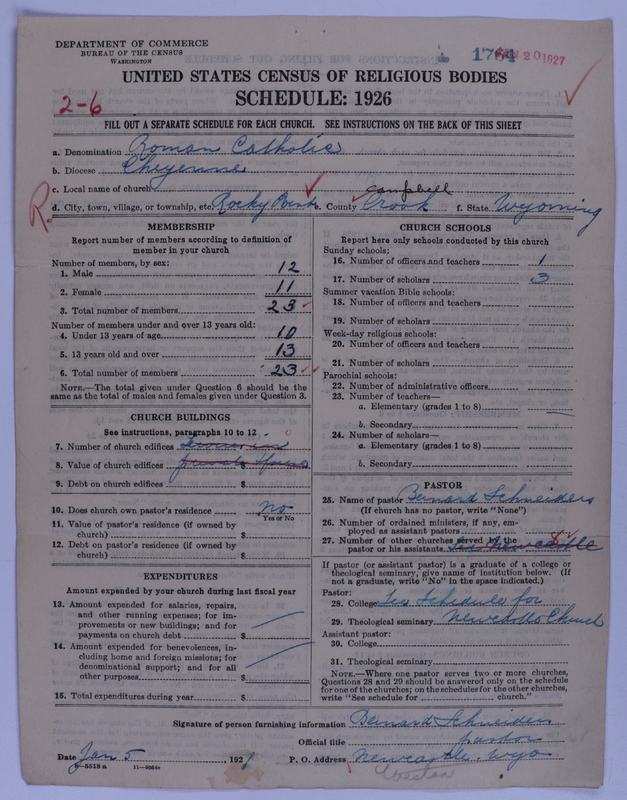 DEPARTMENT OF COMMERCE
BUREAU OF THE CENSUS
WASHINGTON
1764
20 1927
UNITED STATES CENSUS OF RELIGIOUS BODIES
SCHEDULE: 1926
2-6
FILL OUT A SEPARATE SCHEDULE FOR EACH CHURCH. SEE INSTRUCTIONS ON THE BACK OF THIS SHEET
a. Denomination Roman Catholic
b. Diocese Cheyenne
c. Local name of church
R.
campbell
d. City, town, village, or township, etc. Rocky Point e. County Crook f. State Wyoming
MEMBERSHIP
Report number of members according to definition of
member in your church
Number of members, by sex:
1. Male 12
2. Female 11
3. Total number of members 23
Number of members under and over 13 years old:
4. Under 13 years of age 10
5. 13 years old and over 13
6. Total number of members 23
NOTE.—The total given under Question 6 should be the
same as the total of males and females given under Question 3.
CHURCH BUILDINGS
See instructions, paragraphs 10 to 12
7. Number of church edifices
8. Value of church edifices $ private
9. Debt on church edifices $
10. Does church own pastor's residence no
Yes or No
11. Value of pastor's residence (if owned by
church) $
12. Debt on pastor's residence (if owned by
church) $
EXPENDITURES
Amount expended by your church during last fiscal year
13. Amount expended for salaries, repairs,
and other running expenses; for im-
provements or new buildings; and for
payments on church debt $
14. Amount expended for benevolences, in-
cluding home and foreign missions; for
denominational support; and for all
other purposes $
15. Total expenditures during year $
CHURCH SCHOOLS
Report here only schools conducted by this church
Sunday schools:
16. Number of officers and teachers 1
17. Number of scholars 3
Summer vacation Bible schools:
18. Number of officers and teachers
19. Number of scholars
Week-day religious schools:
20. Number of officers and teachers
21. Number of scholars
Parochial schools:
22. Number of administrative officers
23. Number of teachers—
a. Elementary (grades 1 to 8)
b. Secondary
24. Number of scholars—
a. Elementary (grades 1 to 8)
b. Secondary
PASTOR
25. Name of pastor Bernard Schneiders
(If church has no pastor, write "None")
26. Number of ordained ministers, if any, em-
ployed as assistant pastors
27. Number of other churches served by the 8
pastor or his assistants See Newcastle
If pastor (or assistant pastor) is a graduate of a college or
theological seminary, give name of institution below. (If
not a graduate, write "No" in the space indicated.)
Pastor:
28. College See Schedule for
29. Theological seminary Newcastle Church
Assistant pastor:
30. College
31. Theological seminary
NOTE.—Where one pastor serves two or more churches,
Questions 28 and 29 should be answered only on the schedule
for one of the churches; on the schedules for the other churches,
write "See schedule for church."
Signature of person furnishing information Bernard Schneiders
Official title pastor
Date Jan 5 1927 P. O. Address Newcastle, Wyo
Weston
8—5518 a 11—9054